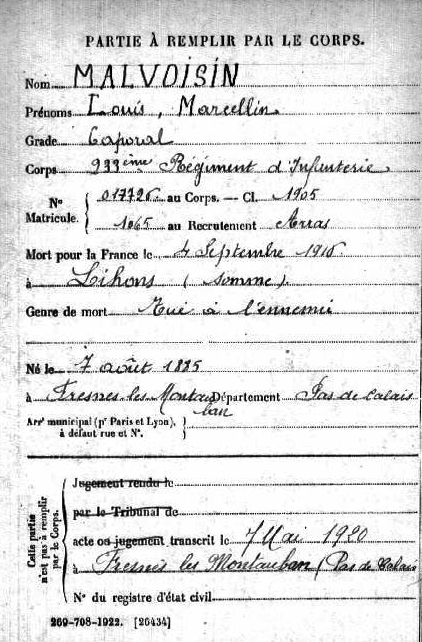 PARTIE À REMPLIR PAR LE CORPS.
Nom MALVOISIN
Prénoms Louis, Marcellin
Grade Caporal
Corps 233ème Régiment d'Infanterie
Nº Matricule. { 017726 au Corps. — Cl. 1905
1065 au Recrutement Arras
Mort pour la France le 4 Septembre 1916
à Lihons (Somme)
Genre de mort Tué à l'ennemi
Né le 7 août 1885
à Fresnes-les-Montauban Département Pas de Calais
Arrt municipal (pr Paris et Lyon), à défaut rue et Nº. }
Cette partie n'est pas à remplir par le Corps.
Jugement rendu le
par le Tribunal de
acte ou jugement transcrit le 7 Mai 1920
à Fresnes les Montauban (Pas de Calais
Nº du registre d'état civil
269-708-1922. [26434]